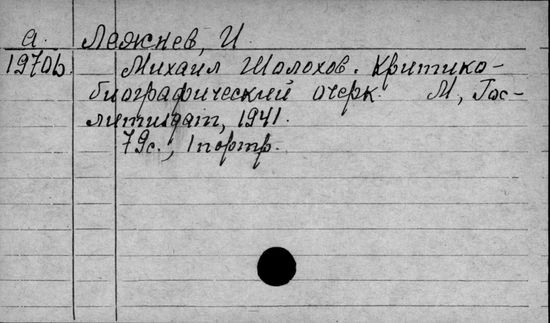 а. Лежнев, И.
1970б Михаил Шолохов. Критико-
биографический очерк. М, Гос-
литиздат, 1941.
79с., 1 портр.